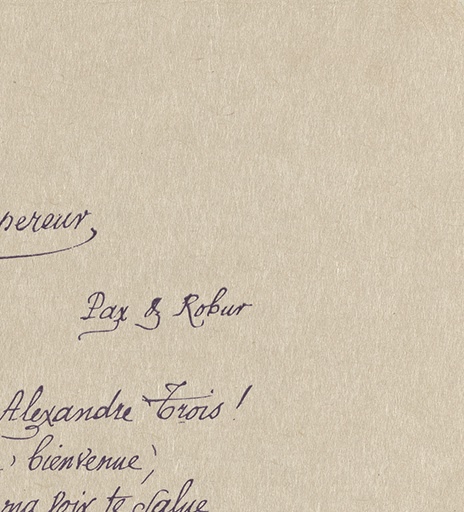 pereur,
Pax & Robur
Alexandre Trois !
, bienvenue,
ma voix te salue